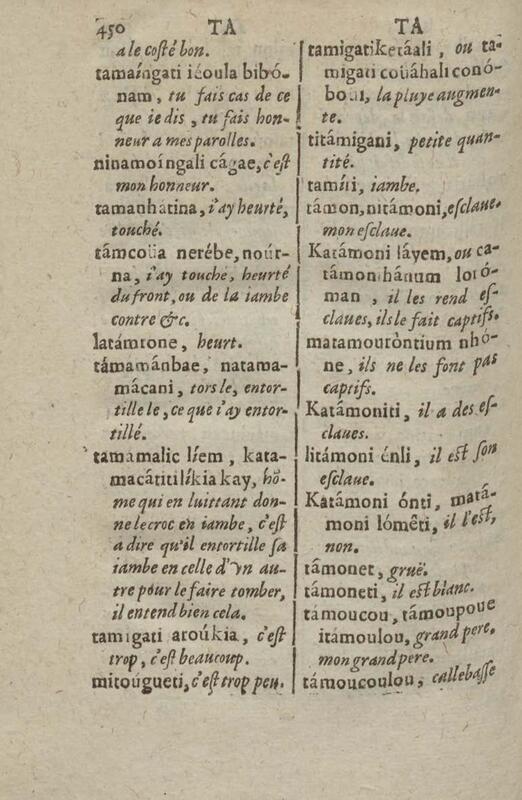 450 TA TA
a le costé bon.
tamaíngati iéoula bibó-
nam, tu fais cas de ce
que ie dis, tu fais hon-
neur a mes parolles.
ninamoíngali cágae, c'est
mon honneur.
tamanhátina, i'ay heurté,
touché.
támcoüa nerébe, noúr-
na, i'ay touché, heurté
du front, ou de la iambe
contre &c.
latámrone, heurt.
támamánbae, natama-
mácani, tors le, entor-
tille le, ce que i'ay entor-
tillé.
tamámalic líem, kata-
macátitilíkia kay, hõ-
me qui en luittant don-
ne le croc en iambe, c'est
a dire qu'il entortille sa
iambe en celle d'vn au-
tre pour le faire tomber,
il entend bien cela.
tamigati aroúkia, c'est
trop, c'est beaucoup.
mitoúgueti, c'est trop peu.
tamigatiketáali, ou ta-
migati coüáhali conó-
boui, la pluye augmen-
te.
titámigani, petite quan-
tité.
tamíti, iambe.
támon, nitámoni, esclaue.
mon esclaue.
Katámoni láyem, ou ca-
támonihánum loró-
man, il les rend es-
claues, ils le fait captifs.
matamouróntium nhó-
ne, ils ne les font pas
captifs.
Katámoniti, il a des es-
claues.
litámoni énli, il est son
esclaue.
Katámoni ónti, matá-
moni lómêti, il l'est,
non.
támonet, gruë.
támoneti, il est blanc.
támoucou, támoupoue
itámoulou, grand pere.
mon grand pere.
támoucoulou, callebasse